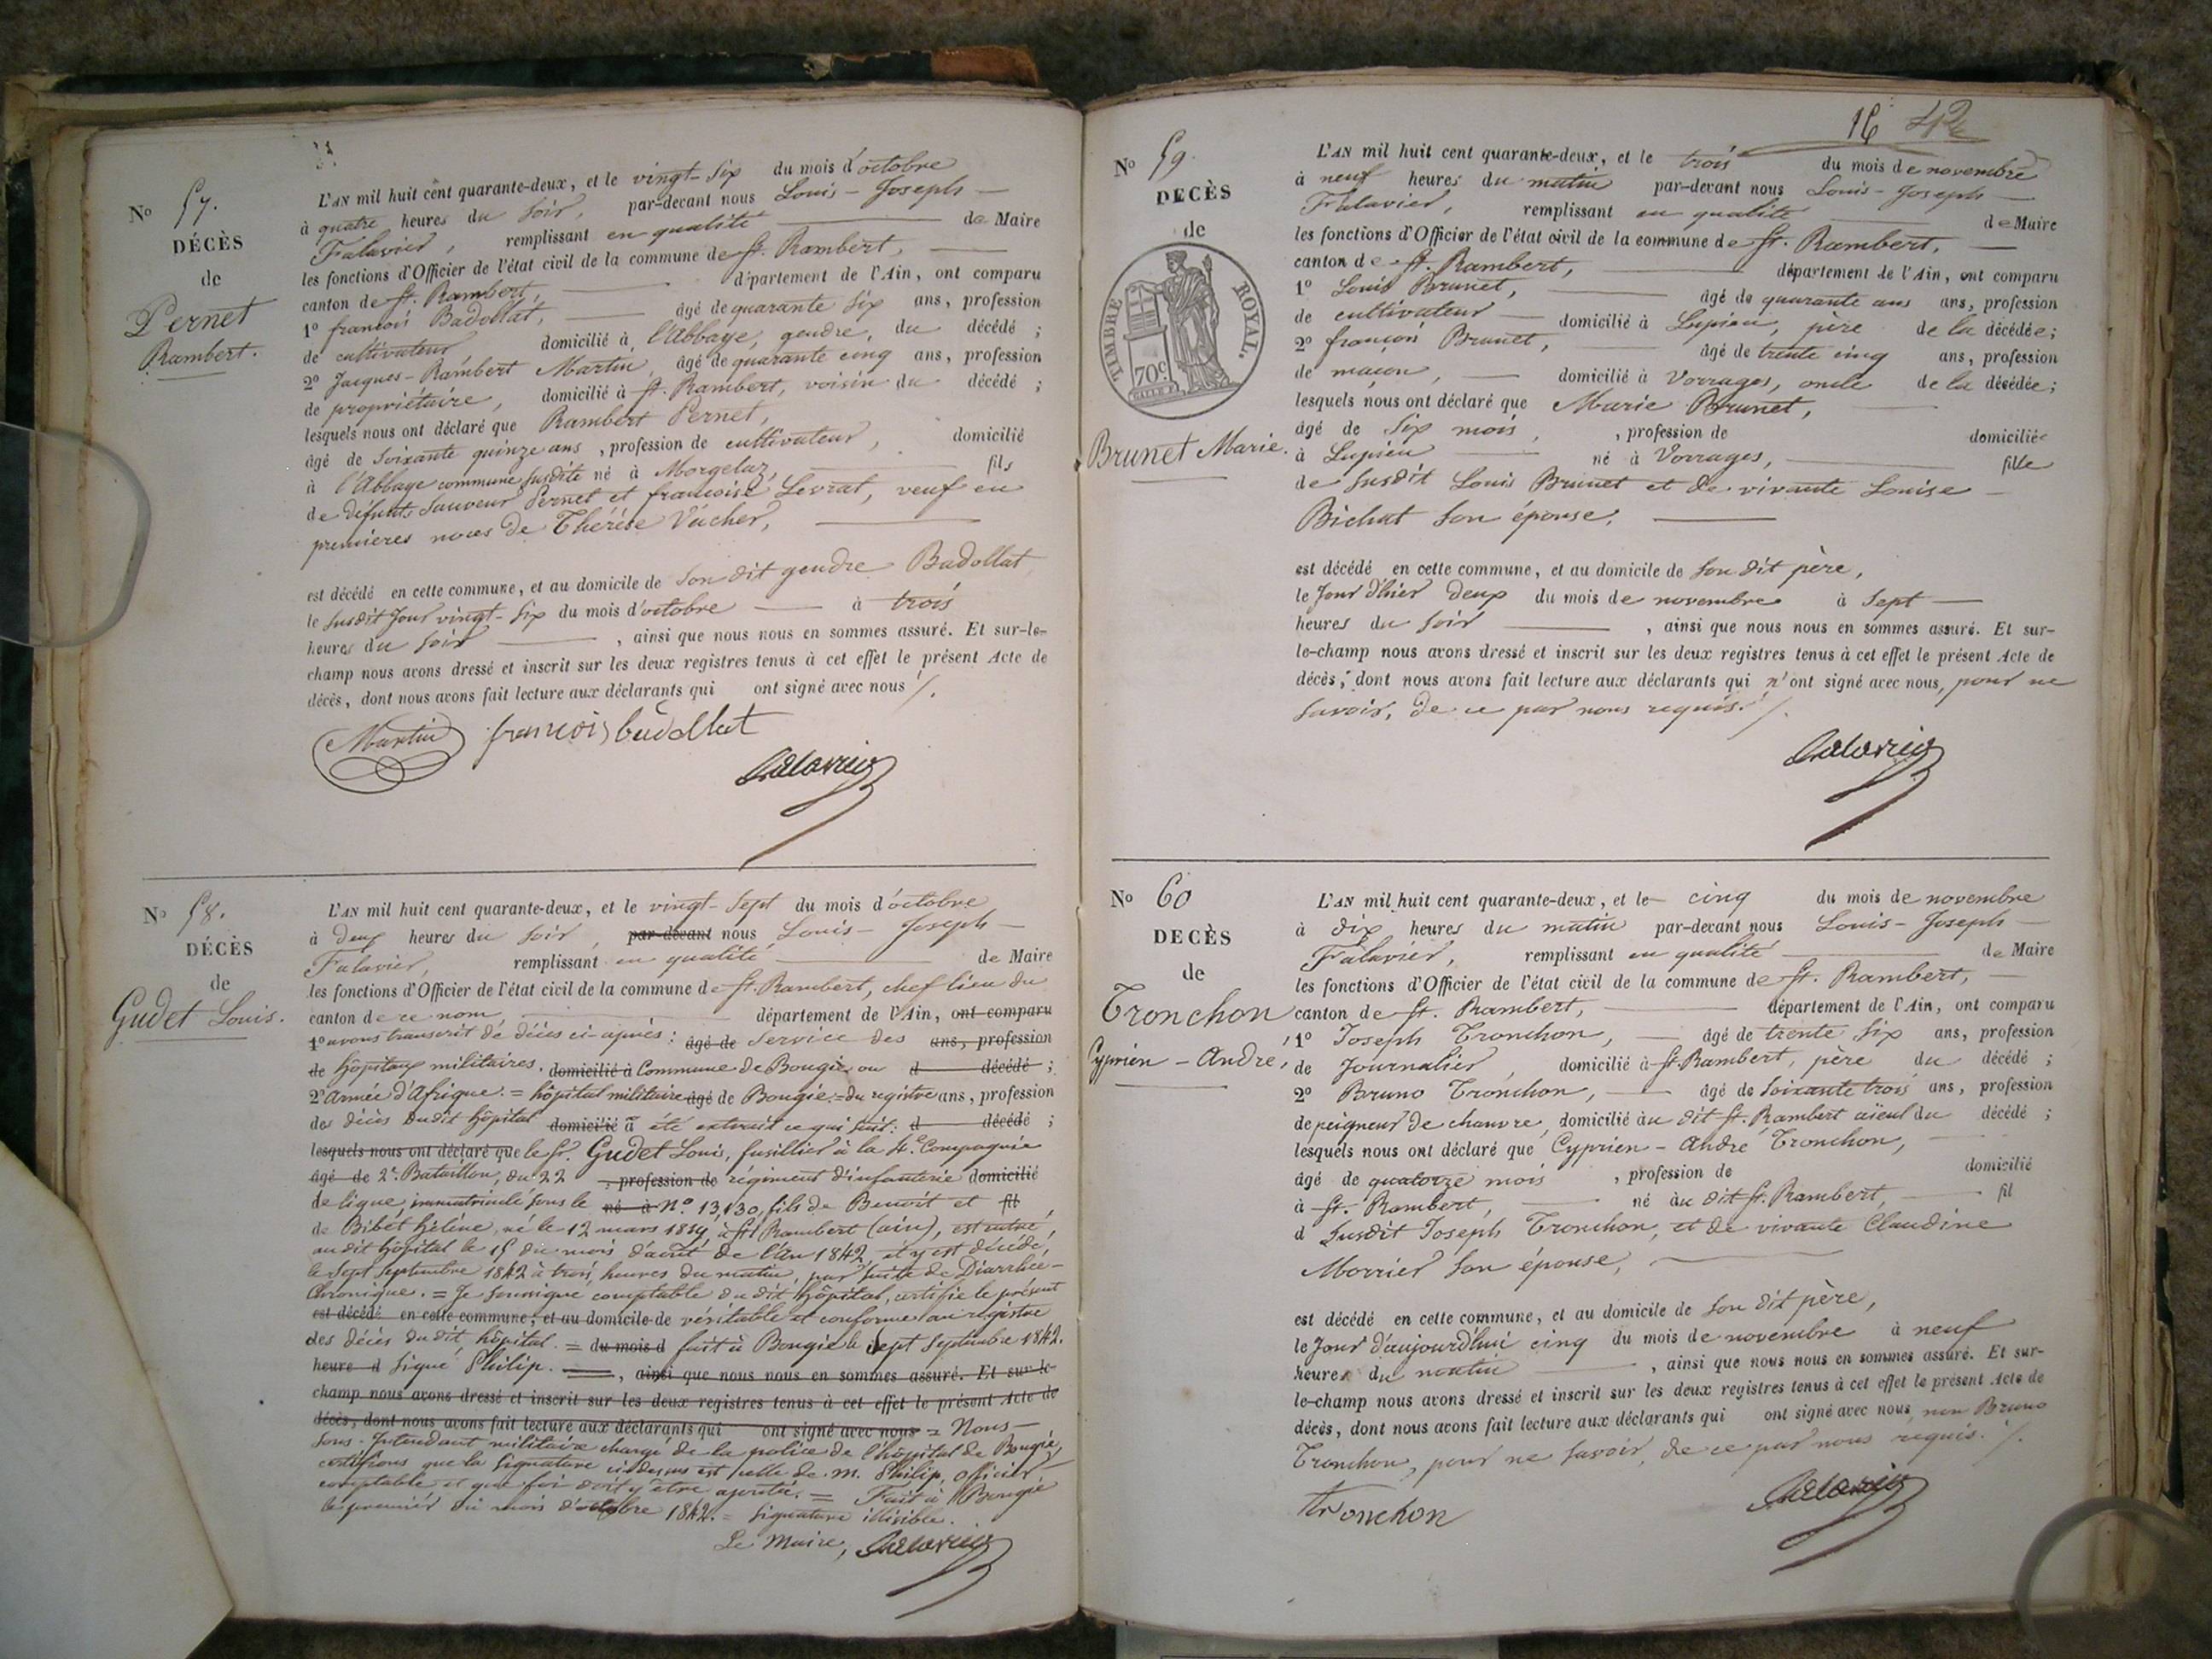 No 57.
DÉCÈS
de
Pernet
Rambert.
L'AN mil huit cent quarante-deux, et le vingt-six du mois d'octobre
à quatre heures du soir, par-devant nous Louis-Joseph
Falavier, remplissant en qualité de Maire
les fonctions d'Officier de l'état civil de la commune de St. Rambert,
canton de St. Rambert, département de l'Ain, ont comparu
1o françois Badollat, âgé de quarante six ans, profession
de cultivateur domicilié à l'Abbaye, gendre, du décédé ;
2o Jacques-Rambert Martin, âgé de quarante cinq ans, profession
de propriétaire, domicilié à St. Rambert, voisin du décédé ;
lesquels nous ont déclaré que Rambert Pernet,
âgé de soixante quinze ans, profession de cultivateur, domicilié
à l'Abbaye commune susdite né à Morgelaz, fils
de défunts Sauveur Pernet et françoise Levrat, veuf en
premieres noces de Thérèse Vucher,
est décédé en cette commune, et au domicile de son dit gendre Badollat
le susdit jour vingt-six du mois d'octobre à trois
heures du soir, ainsi que nous nous en sommes assuré. Et sur-le-
champ nous avons dressé et inscrit sur les deux registres tenus à cet effet le présent Acte de
décès, dont nous avons fait lecture aux déclarants qui ont signé avec nous /.
Martin françois badollat
Falavier
No 58.
DÉCÈS
de
Gudet Louis.
L'AN mil huit cent quarante-deux, et le vingt-sept du mois d'octobre
à deux heures du soir, par-devant nous Louis-Joseph
Falavier, remplissant en qualité de Maire
les fonctions d'Officier de l'état civil de la commune de St. Rambert, chef lieu du
canton de ce nom, département de l'Ain, ont comparu
1o avons transcrit de décès ci-après : âgé de Service des ans, profession
de hôpitaux militaires. domicilié à Commune de Bougie ou d décédé ;
2o Armée d'Afrique. = hôpital militaire âgé de Bougie. = du registre ans, profession
des décès du dit hôpital domicilié à été extrait ce qui suit: d décédé ;
lesquels nous ont déclaré que le Sr. Gudet Louis, fusillier à la 4e Compagnie
âgé de 2e Bataillon, du 22 , profession de régiment d'infanterie domicilié
de ligne, immatriculé sous le né à No. 13,130, fils de Benoit et fil
de Bibet hélène, né le 12 mars 1819, à St. Rambert (ain), est entré,
au dit hôpital le 15 du mois d'août de l'an 1842, et y est décédé,
le sept septembre 1842 à trois heures du matin, par suite de Diarrhée-
Chronique. = Je soussigné comptable du dit hôpital, certifie le présent
est décédé en cette commune, et au domicile de véritable et conforme au registre
des décès du dit, hôpital. = du mois d fait à Bougie le sept septembre 1842.
heure d signé Philip. = , ainsi que nous nous en sommes assuré. Et sur-le-
champ nous avons dressé et inscrit sur les deux registres tenus à cet effet le présent Acte de
décès, dont nous avons fait lecture aux déclarants qui ont signé avec nous = Nous
sous-Intendant militaire chargé de la police de l'hôpital de Bougie,
certifions que la signature ci-dessus est celle de m. Philip, officier
comptable et que foi doit y être ajoutée. = Fait à Bougie
le premier du mois d'octobre 1842. = signature illisible.
Le Maire, Falavier
16
No 59.
DÉCÈS
de
TIMBRE ROYAL.
70c
Brunet Marie.
L'AN mil huit cent quarante-deux, et le trois du mois de novembre
à neuf heures du matin par-devant nous Louis-Joseph
Falavier, remplissant en qualité de Maire
les fonctions d'Officier de l'état civil de la commune de St. Rambert,
canton de St. Rambert, département de l'Ain, ont comparu
1o Louis Brunet, âgé de quarante ans ans, profession
de cultivateur domicilié à Lupieu, père de la décédée;
2o françois Brunet, âgé de trente cinq ans, profession
de maçon, domicilié à Vorrages, oncle de la décédée;
lesquels nous ont déclaré que Marie Brunet,
âgé de six mois, , profession de domiciliée
à Lupieu né à Vorrages, fille
de susdit Louis Brunet et de vivante Louise
Bichat son épouse,
est décédé en cette commune, et au domicile de son dit père,
le jour d'hier deux du mois de novembre à sept
heures du soir, ainsi que nous nous en sommes assuré. Et sur-
le-champ nous avons dressé et inscrit sur les deux registres tenus à cet effet le présent Acte de
décès, dont nous avons fait lecture aux déclarants qui n'ont signé avec nous, pour ne
savoir, de ce par nous requis. /.
Falavier
No 60
DECÈS
de
Tronchon
Cyprien-André,
L'AN mil huit cent quarante-deux, et le cinq du mois de novembre
à dix heures du matin par-devant nous Louis-Joseph
Falavier, remplissant en qualité de Maire
les fonctions d'Officier de l'état civil de la commune de St. Rambert,
canton de St. Rambert, département de l'Ain, ont comparu
1o Joseph Tronchon, âgé de trente six ans, profession
de Journalier, domicilié à St. Rambert, père du décédé ;
2o Bruno Tronchon, âgé de soixante trois ans, profession
de peigneur de chanvre, domicilié au dit St. Rambert aïeul du décédé ;
lesquels nous ont déclaré que Cyprien-André Tronchon,
âgé de quatorze mois, profession de domicilié
à St. Rambert, né au dit St. Rambert, fil
d susdit Joseph Tronchon, et de vivante Claudine
Morrier son épouse,
est décédé en cette commune, et au domicile de son dit père,
le jour d'aujourd'hui cinq du mois de novembre à neuf
heures du matin, ainsi que nous nous en sommes assuré. Et sur-
le-champ nous avons dressé et inscrit sur les deux registres tenus à cet effet le présent Acte de
décès, dont nous avons fait lecture aux déclarants qui ont signé avec nous, non Bruno
Tronchon, pour ne savoir, de ce par nous requis. /.
tronchon
Falavier